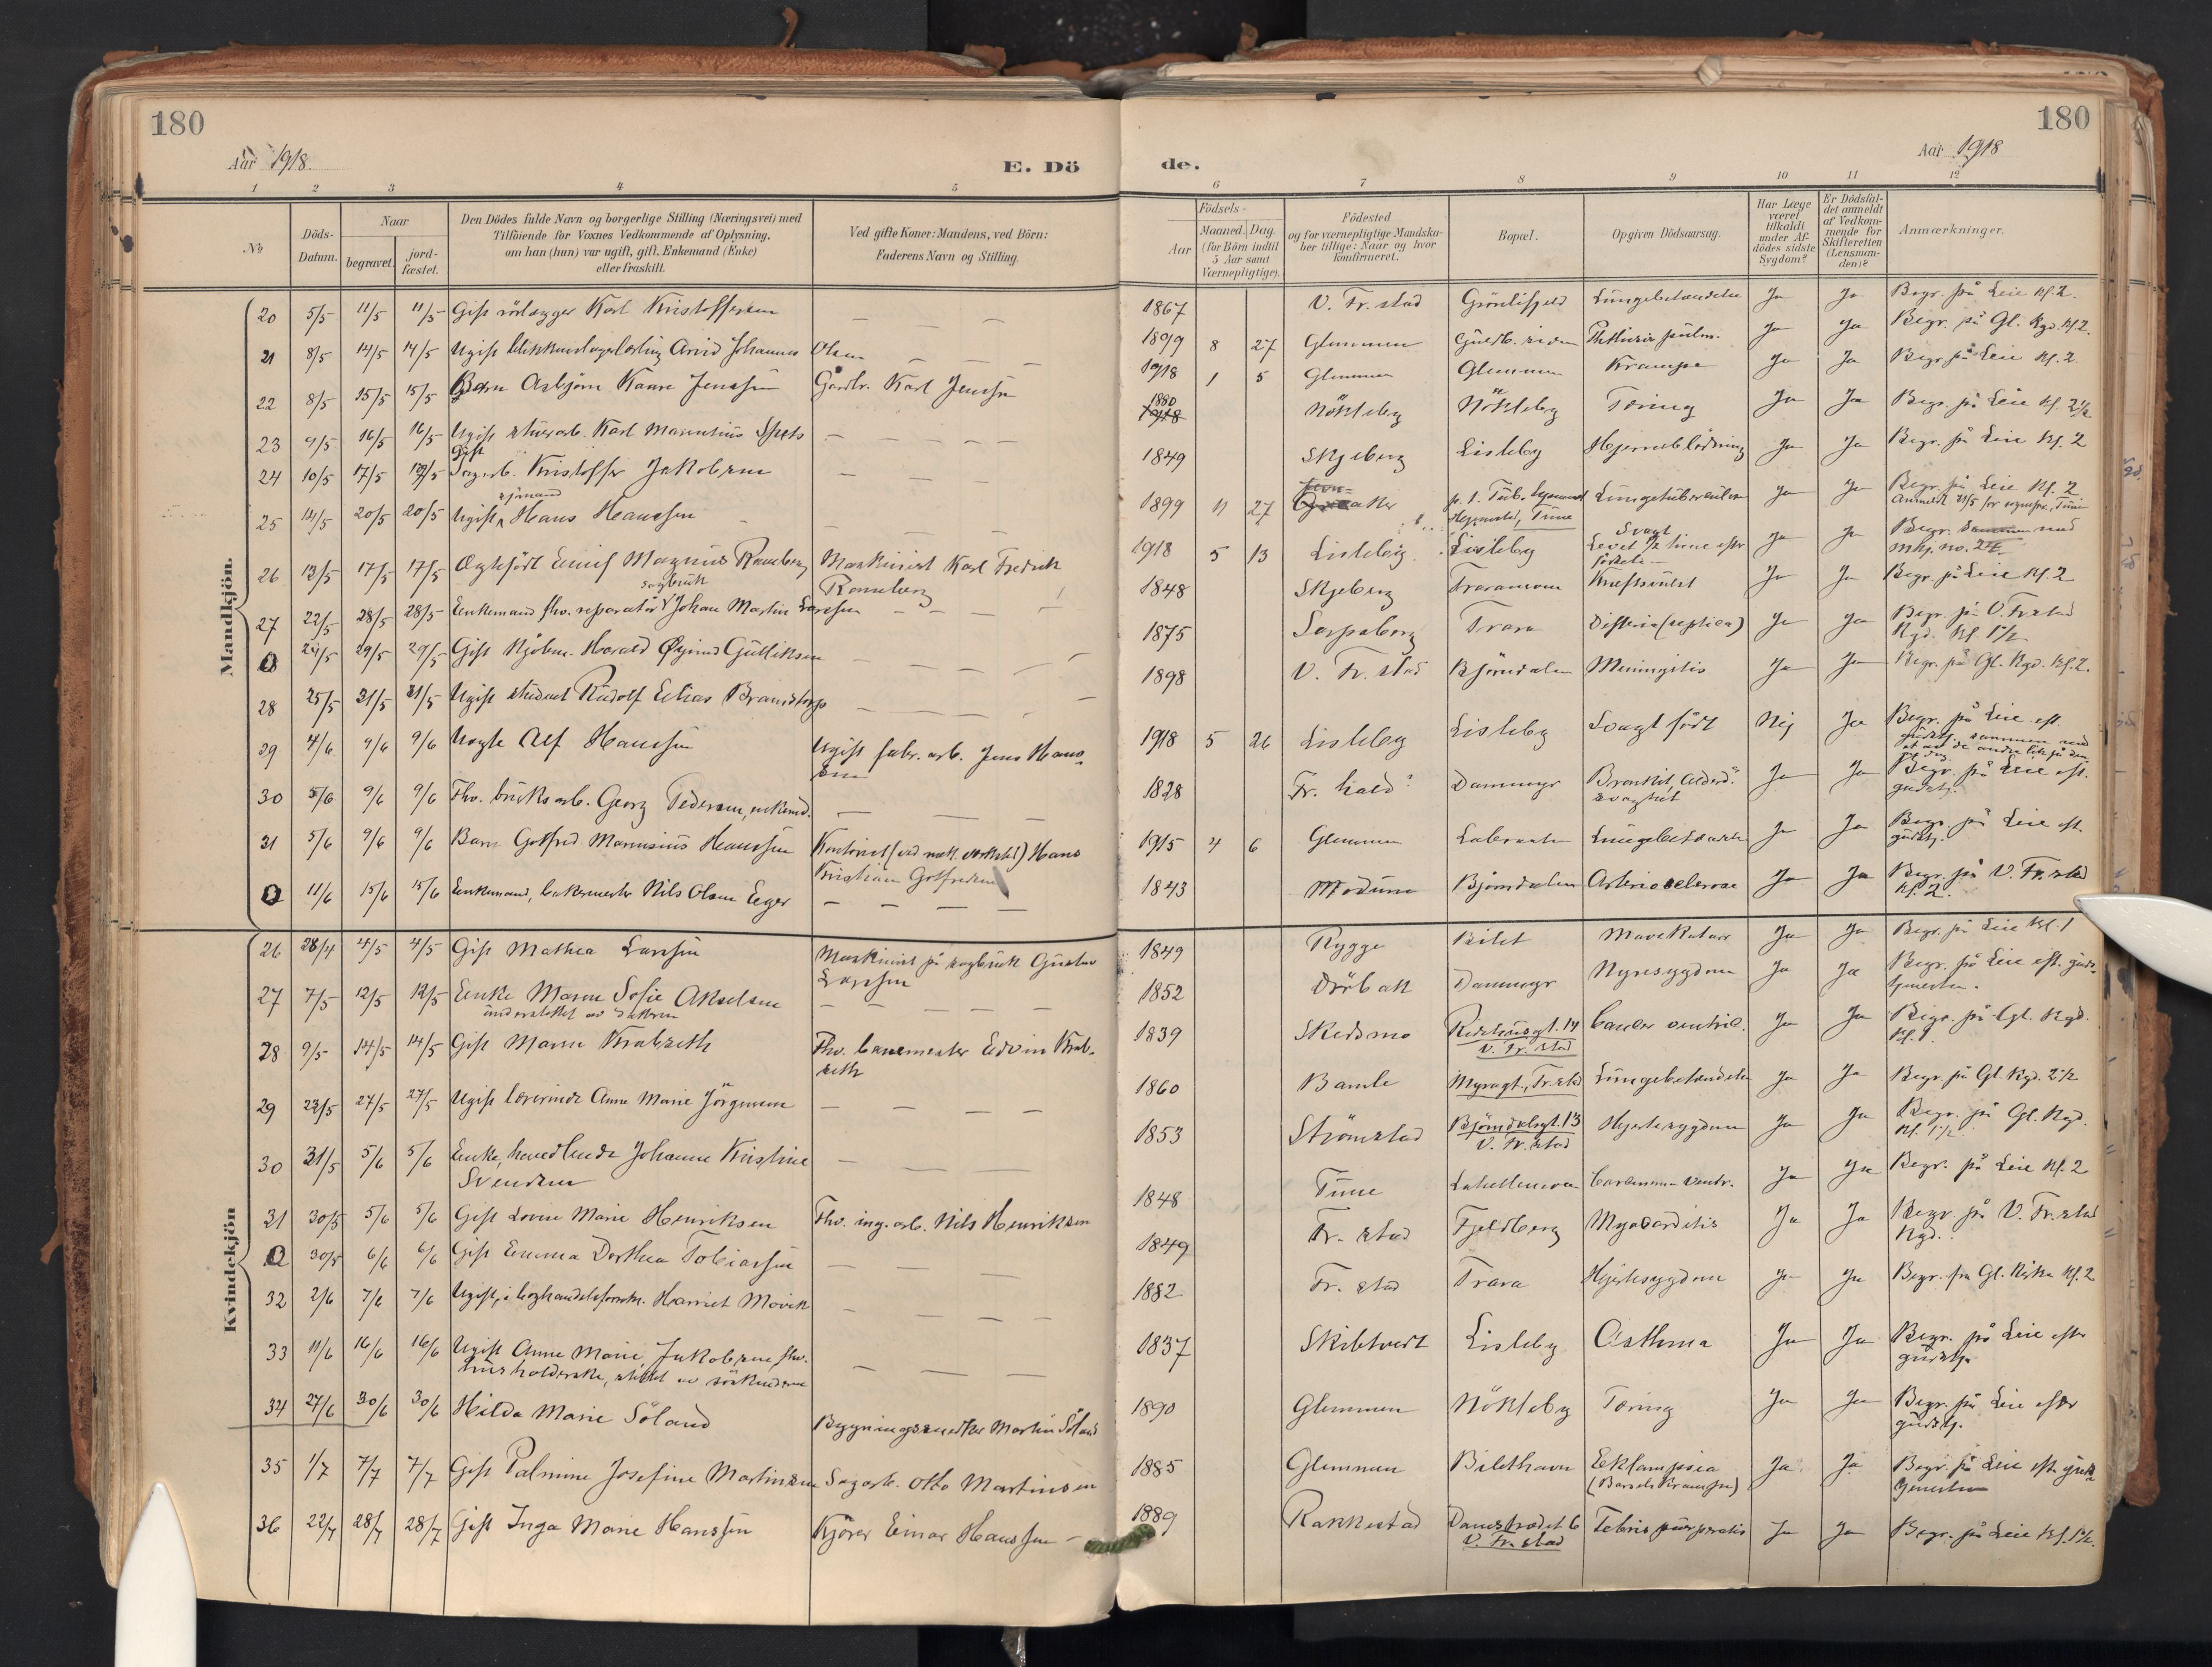 180
180
Aar 1918.
E. Dö
de.
Aar 1918
1 2 3 4 5
6 7 8 9 10 11 12
No
Döds-Datum.
Naar
begravet.
jord-fæstet.
Den Dödes fulde Navn og borgerlige Stilling (Næringsvei) med
Tilföiende for Voxnes Vedkommende af Oplysning,
om han (hun) var ugift, gift, Enkemand (Enke)
eller fraskilt.
Ved gifte Koner: Mandens, ved Börn:
Faderens Navn og Stilling.
Födsels-
Aar
Maaned. Dag.
(for Börn indtil
5 Aar samt
Værnepligtige).
Födested
og for værnepligtige Mandska-
ber tillige: Naar og hvor
konfirmeret.
Bopæl.
Opgiven Dödsaarsag.
Har Læge
været
tilkaldt
under Af-
dödes sidste
Sygdom?
Er Dödsfal-
det anmeldt
af Vedkom-
mende for
Skifteretten
(Lensman-
den)?
Anmærkninger.
Mandkjön.
20 5/5 11/5 11/5 Gift rörlægger Karl Kristoffersen 1867 V. Fr.stad Grönlifjeld Lungebetændelse Ja Ja Begr. på Leie Kl. 2.
21 8/5 14/5 14/5 Ugift blikkenslagerlærling Arvid Johannes Olsen 1899 8 27 Glemmen Phthisis pulm. Ja Ja Begr. på Gl. Kgd. Kl. 2.
22 8/5 15/5 15/5 Barn Asbjörn Kaare Jenssen Gårdbr. Karl Jenssen 1918 1 5 Glemmen Glemmen Krampe Ja Ja Begr. på Leie Kl. 2
23 9/5 16/5 16/5 Ugift stuerarb. Karl Marentius 1880 Nökleby Nökleby Tæring Ja Ja Begr. på Leie Kl. 2½
24 10/5 17/5 Gift Sagarb. Kristoffer Jakobsen 1849 Skjeberg Lisleby Hjerneblödning Ja Ja Begr. på Leie Kl. 2
25 14/5 20/5 20/5 Ugift sjömand Hans Hanssen 1899 11 27 Tune Lungetuberculose Ja Ja Begr. på Leie Kl. 2
26 13/5 17/5 17/5 Ægtefödt Magnus Ranneberg Maskinist Karl Fredrik
Ranneberg 1918 5 13 Lisleby Lisleby Svagt
Levet ½ time efter
födsele Ja Ja Begr. sammen med
27 22/5 28/5 28/5 Enkemand fhv. reparatör sagbruk Johan Martin Larssen 1848 Skjeberg Traramoen Kræftsvulst Ja Ja Begr. på Leie Kl. 2
0 24/5 29/5 29/5 Gift Kjöbm. Harald Øyvind Gulliksen 1875 Sarpsborg Trara Difteria (septica) Ja Ja Begr. på V. Fr.stad
Kgd. Kl. 1½
28 25/5 31/5 31/5 Ugift student Rudolf Elias Brandstorp 1898 V. Fr. stad Björndalen Meningitis Ja Ja Begr. på Gl. Kgd. Kl. 2.
29 4/6 9/6 9/6 Uægte Alf Hanssen Ugift fabr. arb. Jens Hans-
sen 1918 5 26 Lisleby Lisleby Svagt födt Nej Ja Begr. på Leie eft.
30 5/6 9/6 9/6 Fhv. bruksarb. Georg Pedersen, enkemd. 1828 Fr. hald Dammyr Bronkit, Alderd.
svaghet Ja Ja Begr. på Leie eft.
gudstj.
31 5/6 9/6 9/6 Barn Gotfred Marensius Hanssen Kontorist (ved mek. verksted) Hans
Kristian Gotfredsen 1915 4 6 Glemmen Lungebetændelse Ja Ja Begr. på Leie eft.
gudstj.
0 11/6 15/6 15/6 Enkemand, bakermester Nils Olsen Eeger 1843 Modum Björndalen Arteriosclerose Ja Ja Begr. på V. Fr.stad
Kl. 2.
Kvindekjön
26 28/4 4/5 4/5 Gift Mathea Larssen Maskinist på sagbruk Gustav
Larssen 1849 Rygge Bilet Mavekatarr Ja Ja Begr. på Leie Kl. 1
27 7/5 12/5 12/5 Enke Maren Sofie Akselsen
understöttet av datteren 1852 Dröbak Dammyr Nyresygdom Ja Ja Begr. på Leie eft. guds-
tjenesten.
28 9/5 14/5 14/5 Gift Maren Krabseth Fhv. banemester Edvin Krab-
seth 1839 Skedsmo Ridehusgt. 14
V. Fr. stad Cancer ventric. Ja Ja Begr. på Gl. Kgd.
Kl. 1.
29 23/5 27/5 27/5 Ugift lærerinde Anna Marie Jörgensen 1860 Bamle Myragt., Fr.stad Lungebetændelse Ja Ja Begr. på Gl. Kgd. 2½
30 31/5 5/6 5/6 Enke, Johanne Kristine
Svendsen 1853 Strömstad Björndalsgt. 13
V. Fr. stad Hjertesygdom Ja Ja Begr. på Gl. Kgd.
Kl. 1½
31 30/5 5/6 5/6 Gift Lovise Marie Henriksen Fhv. ing. arb. Nils Henriksen 1848 Tune Ja Ja Begr. på Leie Kl. 2
0 30/5 6/6 6/6 Gift Emma Dorthea Tobiassen 1849 Fr. stad Fjeldberg Myocarditis Ja Ja Begr. på V. Fr.stad
Kgd.
32 2/6 7/6 7/6 Ugift, Harriet Mövik 1882 Fr. stad Trara Hjertesygdom Ja Ja Begr. fra Gl. Kirke Kl. 2
33 11/6 16/6 16/6 Ugift Anne Marie Jakobsen fhv.
husholderske, stöttet av söskendene 1837 Skibtvedt Lisleby Asthma Ja Ja Begr. på Leie efter
gudstj.
34 27/6 30/6 30/6 Hilda Marie Söland Bygningssnedker Martin Söland 1890 Glemmen Nökleby Tæring Ja Ja Begr. på Leie efter
gudstj.
35 1/7 7/7 7/7 Gift Palmine Josefine Martinsen Sagarb. Otto Martinsen 1885 Glemmen Bilethavn Eklampsia
(Barselkrampe) Ja Ja Begr. på Leie eft. guds-
tjenesten
36 22/7 28/7 28/7 Gift Inga Marie Hanssen Kjörer Einar Hanssen 1889 Rakkestad Damstrædet 6
V. Fr. stad Febris puerperalis Ja Ja Begr. på Leie Kl. 1½.